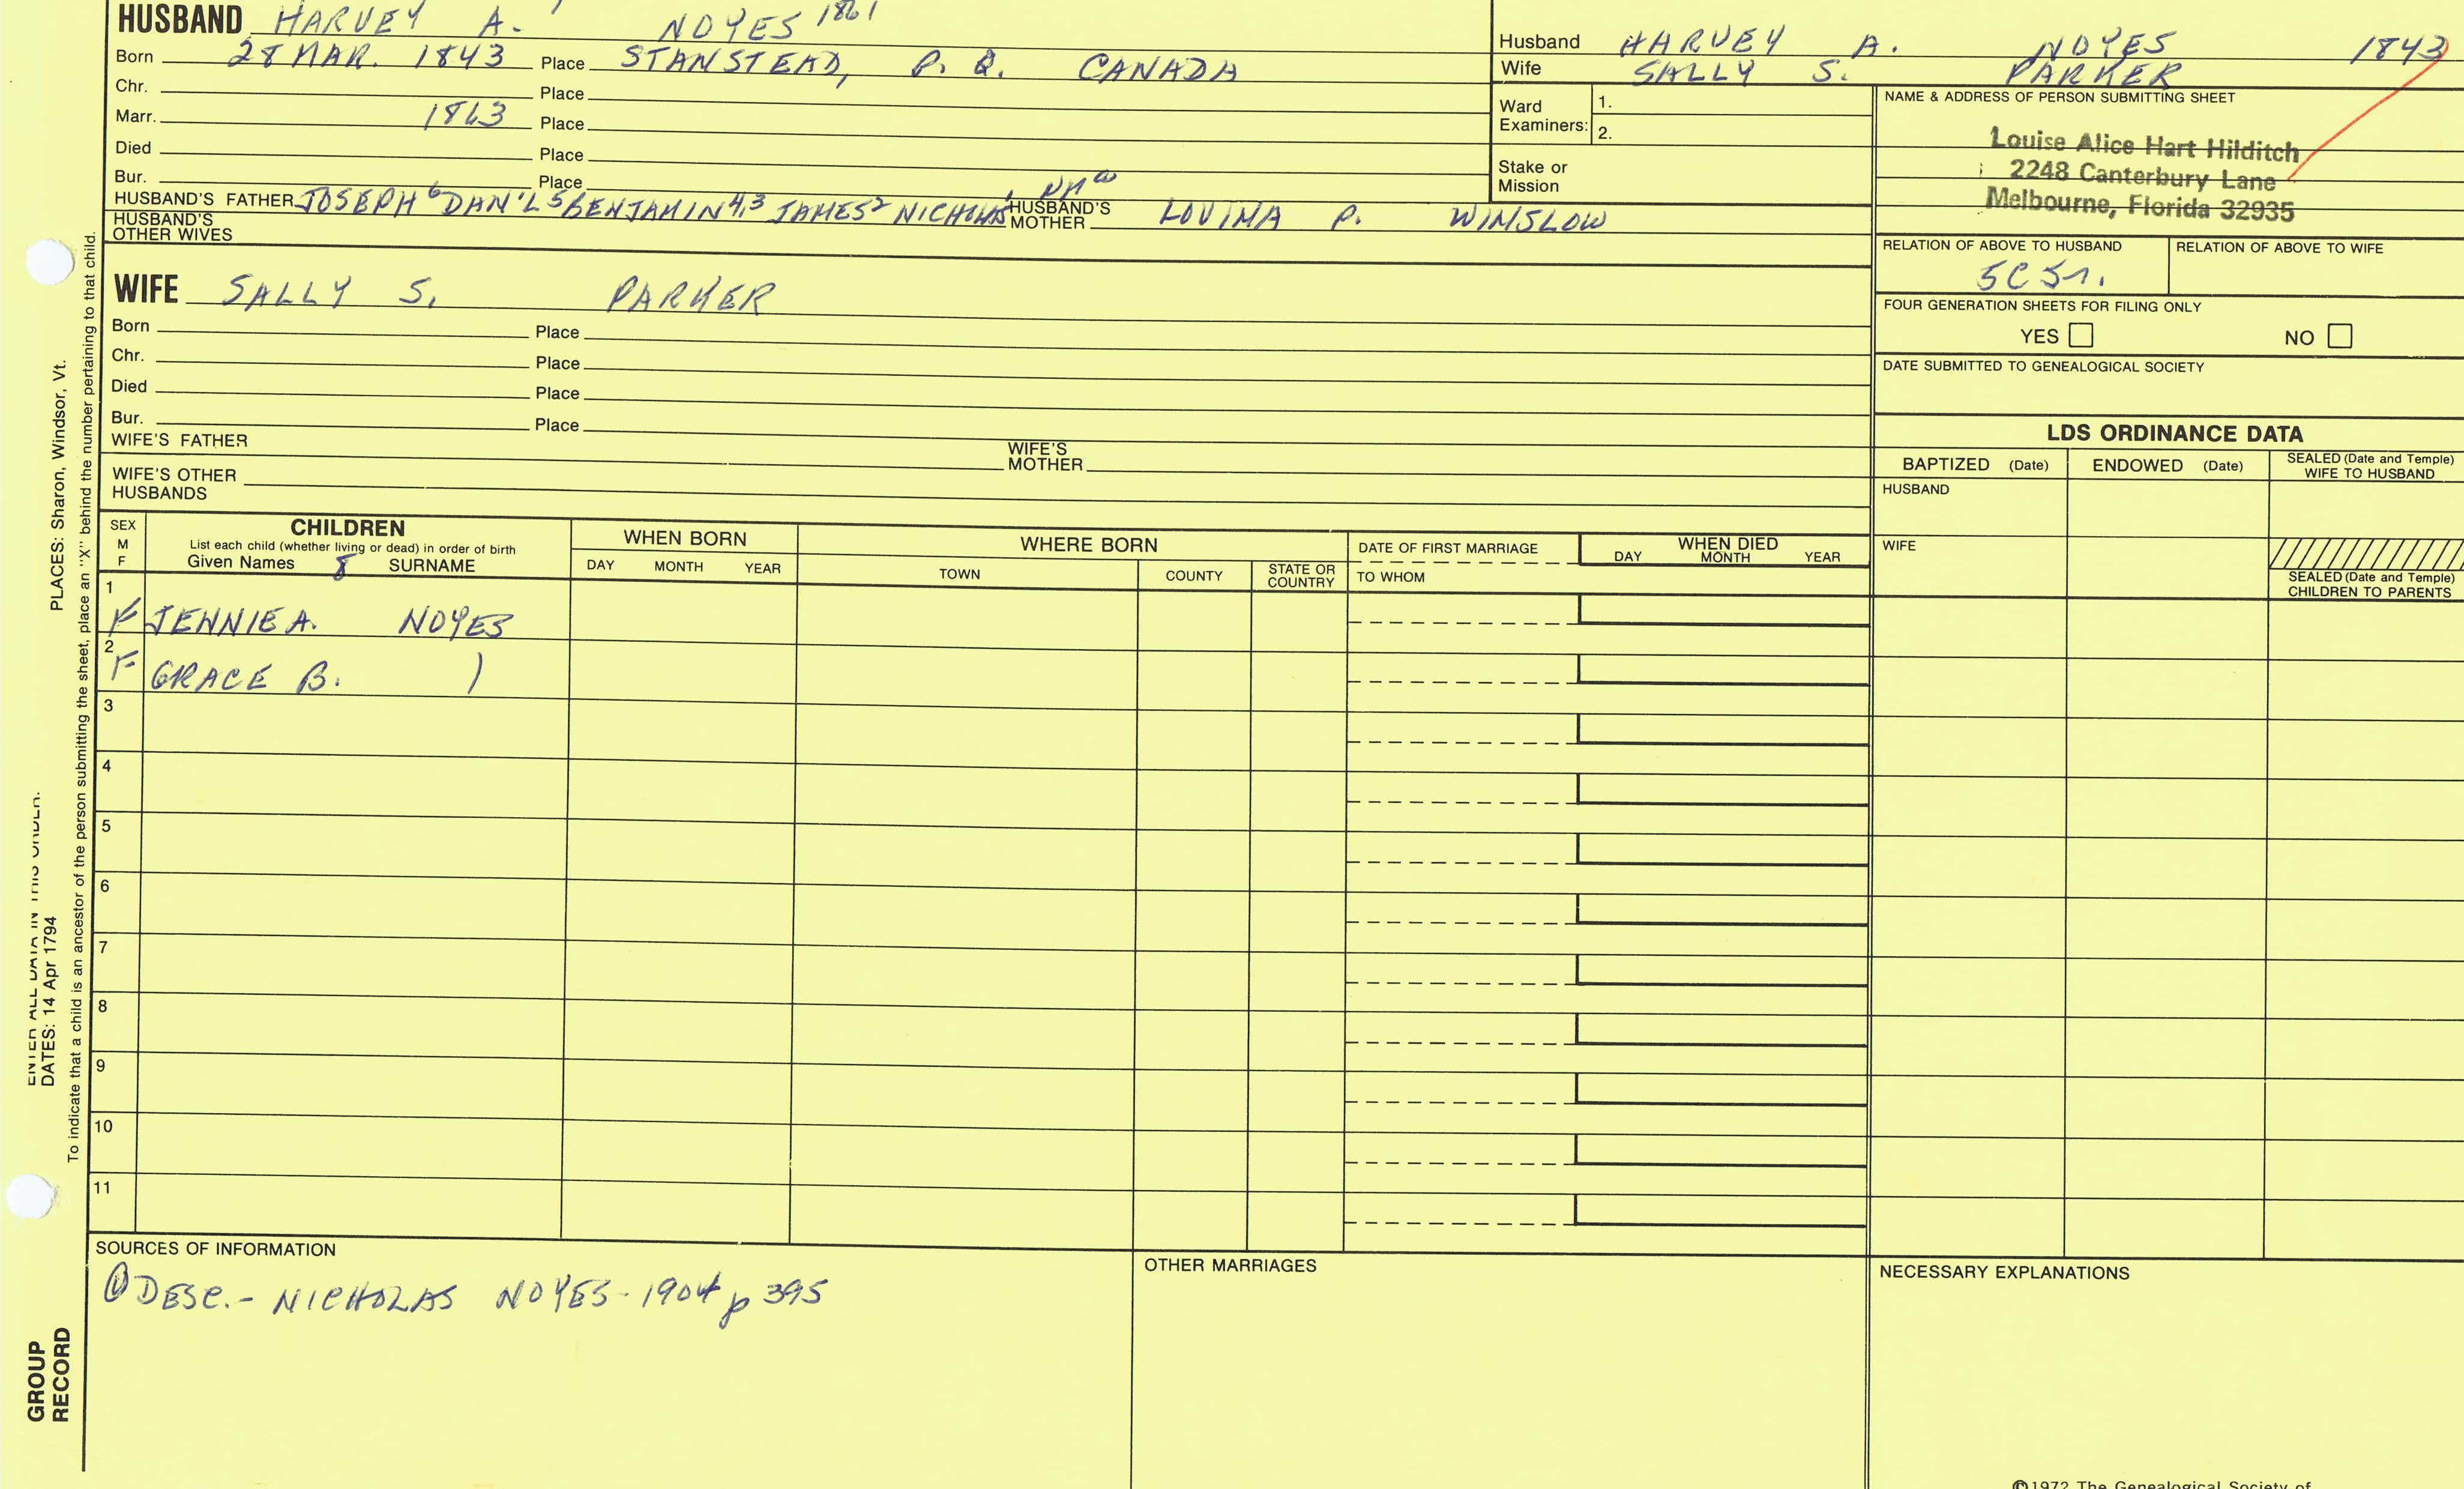 HUSBAND HARVEY A. NOYES 1861
Born 28 MAR. 1843 Place STANSTEAD, P. Q. CANADA
Chr. Place
Marr. 1863 Place
Died Place
Bur. Place
HUSBAND'S FATHER JOSEPH 6 DAN'L 5 BENJAMIN 4,3 JAMES 2 NICHOLAS 1 HUSBAND'S MOTHER LOVINA P. WINSLOW
HUSBAND'S OTHER WIVES
WIFE SALLY S. PARKER
Born Place
Chr. Place
Died Place
Bur. Place
WIFE'S FATHER WIFE'S MOTHER
WIFE'S OTHER HUSBANDS
Husband HARVEY A. NOYES 1843
Wife SALLY S. PARKER
Ward Examiners: 1.
2.
Stake or Mission
NAME & ADDRESS OF PERSON SUBMITTING SHEET
Louise Alice Hart Hilditch
2248 Canterbury Lane
Melbourne, Florida 32935
RELATION OF ABOVE TO HUSBAND RELATION OF ABOVE TO WIFE
FOUR GENERATION SHEETS FOR FILING ONLY
YES NO
DATE SUBMITTED TO GENEALOGICAL SOCIETY
LDS ORDINANCE DATA
BAPTIZED (Date) ENDOWED (Date) SEALED (Date and Temple) WIFE TO HUSBAND
HUSBAND
WIFE
SEALED (Date and Temple) CHILDREN TO PARENTS
SEX M F
CHILDREN
List each child (whether living or dead) in order of birth
Given Names 8 SURNAME
WHEN BORN
DAY MONTH YEAR
WHERE BORN
TOWN COUNTY STATE OR COUNTRY
DATE OF FIRST MARRIAGE
TO WHOM
WHEN DIED
DAY MONTH YEAR
1
F JENNIE A. NOYES
2
F GRACE B. )
3
4
5
6
7
8
9
10
11
SOURCES OF INFORMATION
① DESC.- NICHOLAS NOYES - 1904 p 395
OTHER MARRIAGES
NECESSARY EXPLANATIONS
©1972 The Genealogical Society of
ENTER ALL DATA IN THIS ORDER.
DATES: 14 Apr 1794
PLACES: Sharon, Windsor, Vt.
To indicate that a child is an ancestor of the person submitting the sheet, place an "X" behind the number pertaining to that child.
GROUP
RECORD